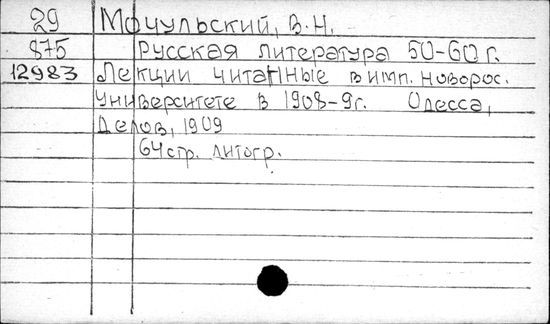 29 Мочульский, В.Н.
875 Русская литература 50-60 г.
12983 Лекции читанные в имп. Новорос.
Университете в 1908-9 г. Одесса,
Делов, 1909
64 стр. литогр.